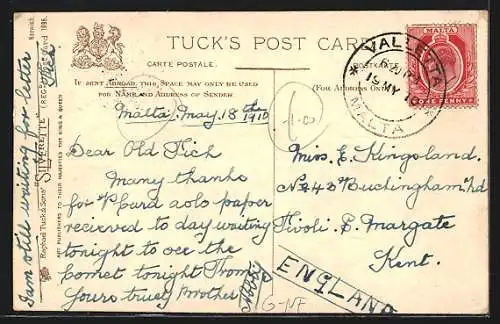 TUCK'S POST CARD
CARTE POSTALE.
POSTKARTE.
IF SENT ABROAD, THIS SPACE MAY ONLY BE USED
FOR NAME AND ADDRESS OF SENDER.
(FOR ADDRESS ONLY)
Malta. May. 18th 1910
Dear Old Tich
Many thanks
for P Card aolo paper
recieved to day waiting
tonight to see the
Comet tonight From
Yours truely Brother
I am still waiting for letter
Miss. E. Kingsland.
No 243 Buckingham Rd
Tivoli. E. Margate
Kent.
ENGLAND
VALLETTA
19 MY 10
MALTA
MALTA
ONE PENNY
Raphael Tuck & Sons' "SILVERETTE"
ART PUBLISHERS TO THEIR MAJESTIES THE KING & QUEEN